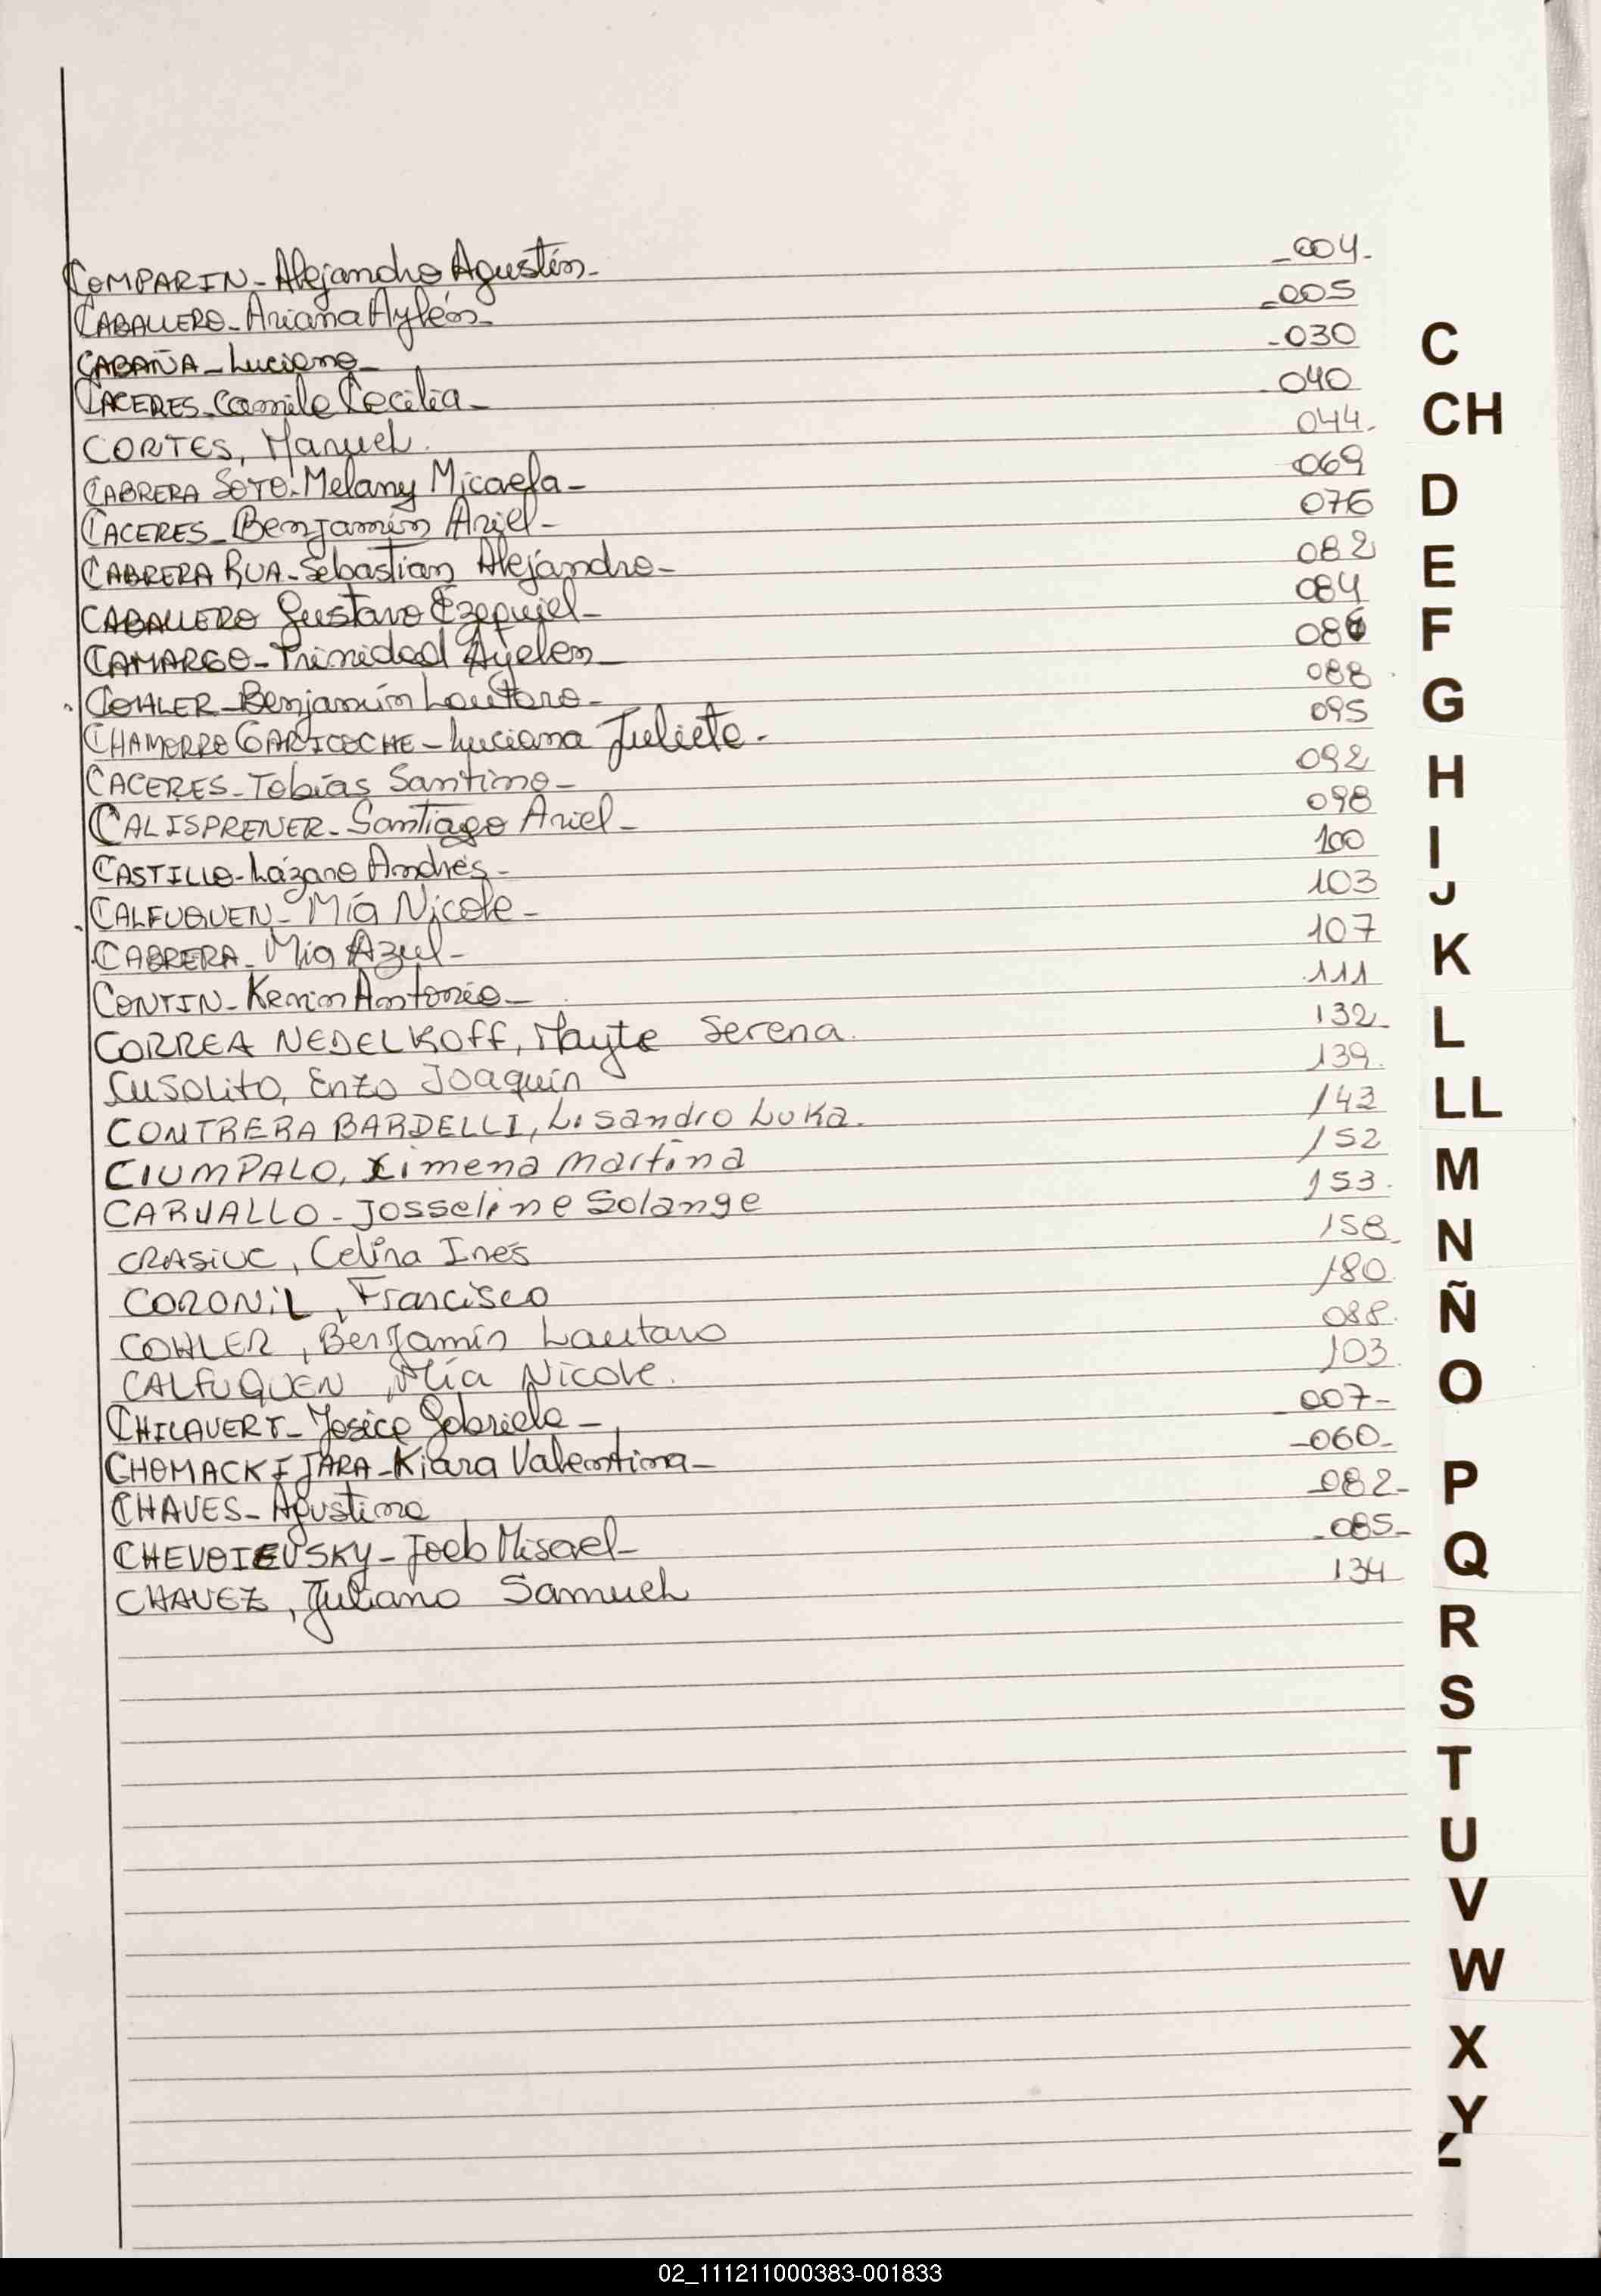 COMPARIN - Alejandro Agustín - 004 -
CABALLERO - Ariana Aylén - 005
CABAÑA - Luciano - 030
CACERES - Camila Cecilia - 040
CORTES, Manuel. 044.
CABRERA SOTO - Melany Micaela - 069
CACERES - Benjamín Ariel - 076
CABRERA RUA - Sebastian Alejandro - 082
CABALLERO Gustavo Ezequiel - 084
CAMARGO - Trinidad Ayelen - 086
COHLER - Benjamín Lautaro - 088
CHAMORRO GARICOCHE - Luciana Julieta - 095
CACERES - Tobías Santino - 092
CALISPRENER - Santiago Ariel - 098
CASTILLO - Lázaro Andrés - 100
CALFUQUEN - Mía Nicole - 103
CABRERA - Mia Azul - 107
CONTIN - Kevin Antonio - 111
CORREA NEDELKOFF, Mayte Serena. 132
CUSOLITO, Enzo Joaquín 139.
CONTRERA BARDELLI, Lisandro Luka. 143
CIUMPALO, Ximena Martina 152
CARVALLO - Josseline Solange 153.
CRASIUC, Celina Inés 158
CORONIL, Francisco 180
COHLER, Benjamín Lautaro 088.
CALFUQUEN, Mía Nicole. 103
CHILAVERT - Gabriela - 007 -
CHOMACKI JARA - Kiara Valentina - 060 -
CHAVES - Agustina 082 -
CHEVOIEVSKY - Joeb Misael - 085 -
CHAVEZ, Juliano Samuel 134
C
CH
D
E
F
G
H
I
J
K
L
LL
M
N
Ñ
O
P
Q
R
S
T
U
V
W
X
Y
02_111211000383-001833